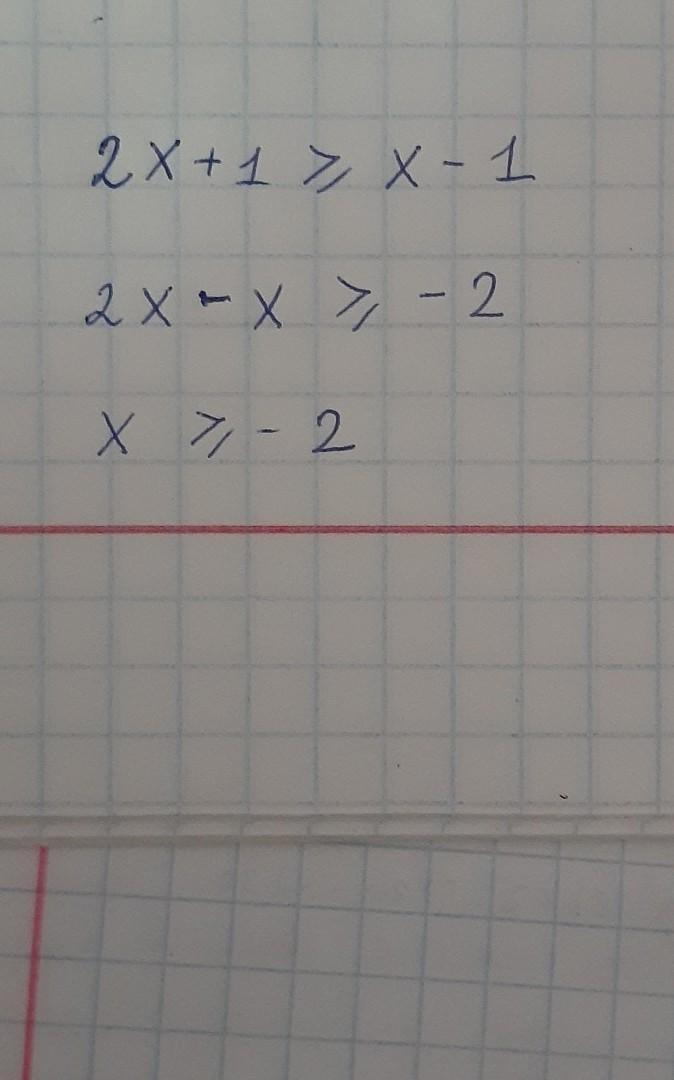 2x+1 ⩾ x-1
2x-x ⩾ -2
x ⩾ -2